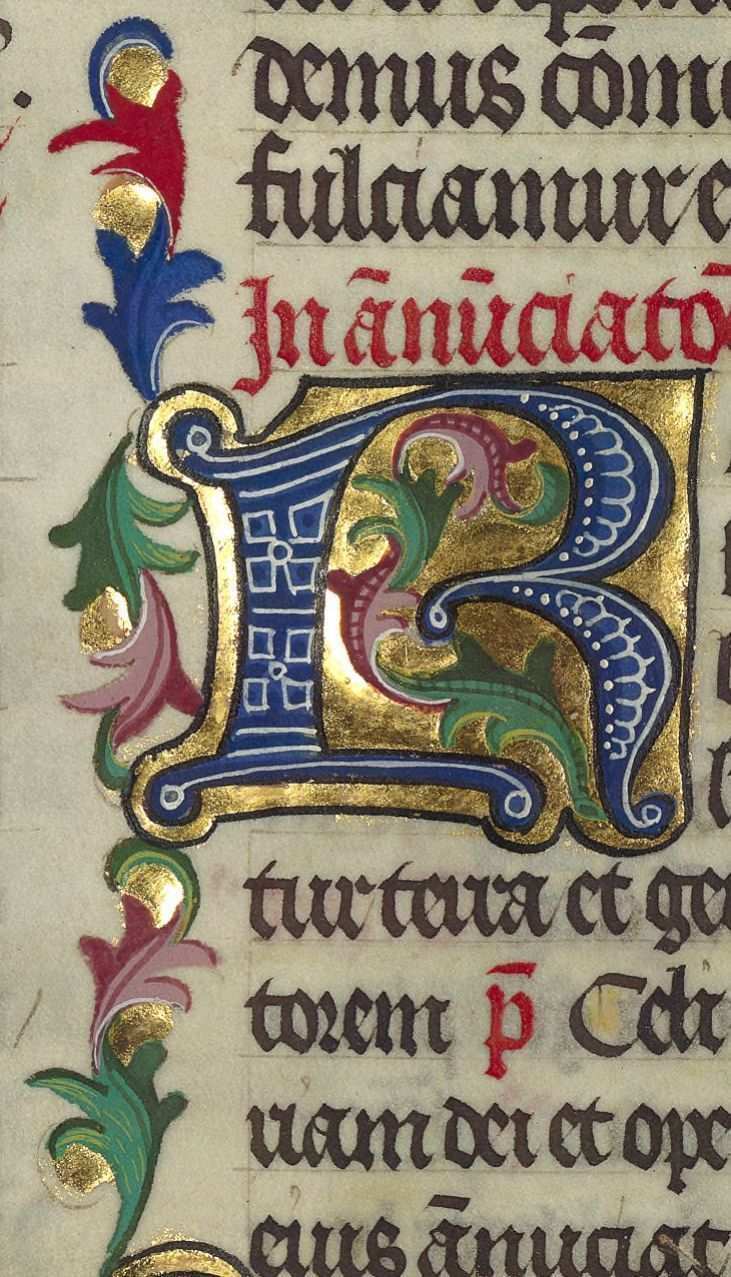 demus cōm
fulciamur e
In ānūciatō
R
tur terra et ge
torem p̄ Celi
uam dei et ope
eius ānuciat